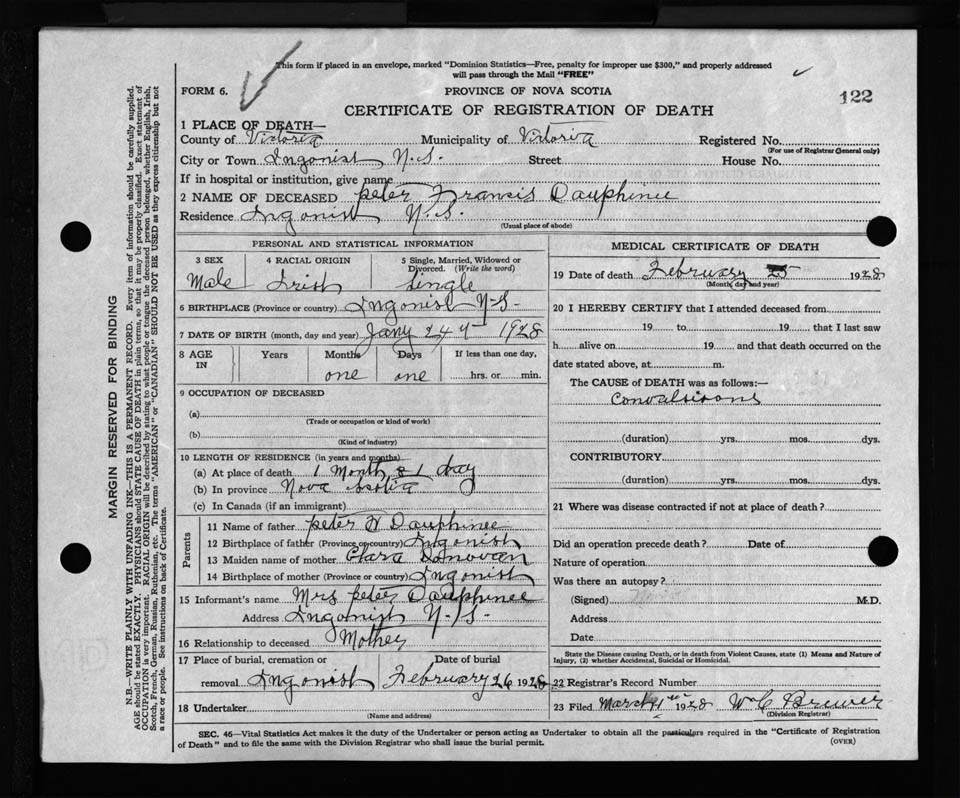 This form if placed in an envelope, marked "Dominion Statistics—Free, penalty for improper use $300," and properly addressed
will pass through the Mail "FREE"
FORM 6.
PROVINCE OF NOVA SCOTIA
122
CERTIFICATE OF REGISTRATION OF DEATH
1 PLACE OF DEATH—
County of Victoria Municipality of Victoria Registered No.
(For use of Registrar General only)
City or Town Ingonish N.S. Street House No.
If in hospital or institution, give name
2 NAME OF DECEASED Peter Francis Dauphinee
Residence Ingonish N.S.
(Usual place of abode)
PERSONAL AND STATISTICAL INFORMATION
3 SEX 4 RACIAL ORIGIN 5 Single, Married, Widowed or
Divorced. (Write the word)
Male Irish Single
6 BIRTHPLACE (Province or country) Ingonish N-S-
7 DATE OF BIRTH (month, day and year) Jany 24 1928
8 AGE IN Years Months Days If less than one day,
one one hrs. or min.
9 OCCUPATION OF DECEASED
(a)
(Trade or occupation or kind of work)
(b)
(Kind of industry)
10 LENGTH OF RESIDENCE (in years and months)
(a) At place of death 1 Month & 1 day
(b) In province Nova Scotia
(c) In Canada (if an immigrant)
Parents
11 Name of father Peter W Dauphinee
12 Birthplace of father (Province or country) Ingonish
13 Maiden name of mother Clara Donovan
14 Birthplace of mother (Province or country) Ingonish
15 Informant's name Mrs Peter Dauphinee
Address Ingonish N-S-
16 Relationship to deceased Mother
17 Place of burial, cremation or Date of burial
removal Ingonish February 26 1928
18 Undertaker
(Name and address)
MEDICAL CERTIFICATE OF DEATH
19 Date of death February 25 1928
(Month, day and year)
20 I HEREBY CERTIFY that I attended deceased from
19 to 19 that I last saw
h alive on 19 and that death occurred on the
date stated above, at m.
The CAUSE of DEATH was as follows:—
Convalsions
(duration) yrs. mos. dys.
CONTRIBUTORY
(duration) yrs. mos. dys.
21 Where was disease contracted if not at place of death?
Did an operation precede death? Date of
Nature of operation
Was there an autopsy?
(Signed) M.D.
Address
Date
State the Disease causing Death, or in death from Violent Causes, state (1) Means and Nature of
Injury, (2) whether Accidental, Suicidal or Homicidal.
22 Registrar's Record Number
23 Filed March 1928 W C Brewer
(Division Registrar)
SEC. 46—Vital Statistics Act makes it the duty of the Undertaker or person acting as Undertaker to obtain all the particulars required in the "Certificate of Registration
of Death" and to file the same with the Division Registrar who shall issue the burial permit. (OVER)
MARGIN RESERVED FOR BINDING
N.B.—WRITE PLAINLY WITH UNFADING INK—THIS IS A PERMANENT RECORD. Every item of information should be carefully supplied.
AGE should be stated EXACTLY. PHYSICIANS should STATE CAUSE OF DEATH in plain terms, so that it may be properly classified. Exact statement of
OCCUPATION is very important. RACIAL ORIGIN will be described by stating to what people or tongue the deceased person belonged, whether English, Irish,
Scotch, French, German, Russian, Ruthenian, etc. The terms "AMERICAN" or "CANADIAN" SHOULD NOT BE USED as they express citizenship but not
a race or people. See instructions on back of Certificate.